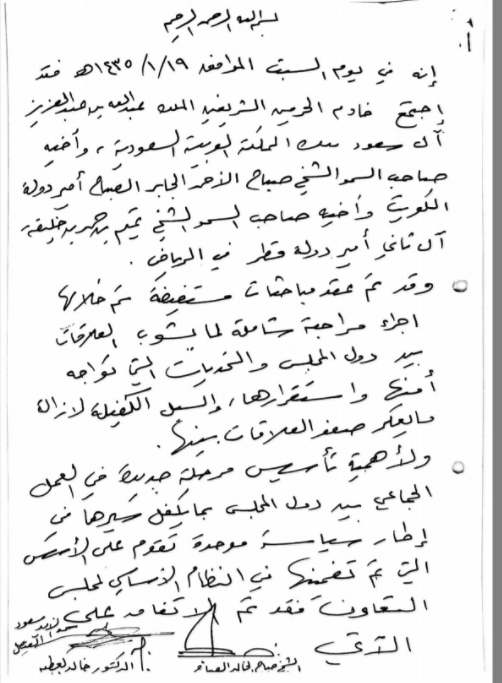 بسم الله الرحمن الرحيم
إنه في يوم السبت الموافق ١٤٣٥/١/١٩هـ فقد
اجتمع خادم الحرمين الشريفين الملك عبدالله بن عبدالعزيز
آل سعود ملك المملكة العربية السعودية، وأخيه
صاحب السمو الشيخ صباح الأحمد الجابر الصباح أمير دولة
الكويت وأخيه صاحب السمو الشيخ تميم بن حمد بن خليفة
آل ثاني أمير دولة قطر في الرياض.
وقد تم عقد مباحثات مستفيضة تم خلالها
اجراء مراجعة شاملة لما يشوب العلاقات
بين دول المجلس والتحديات التي تواجه
أمنها واستقرارها، والسبل الكفيلة لازالة
ما يعكر صفو العلاقات بينها.
ولأهمية تأسيس مرحلة جديدة في العمل
الجماعي بين دول المجلس بما يكفل سيرها في
إطار سياسة موحدة تقوم على الأسس
التي تم تضمينها في النظام الاساسي لمجلس
التعاون فقد تم الاتفاق على
الآتي
سعود الفيصل
الشيخ صباح الخالد الصباح
الدكتور خالد العطية